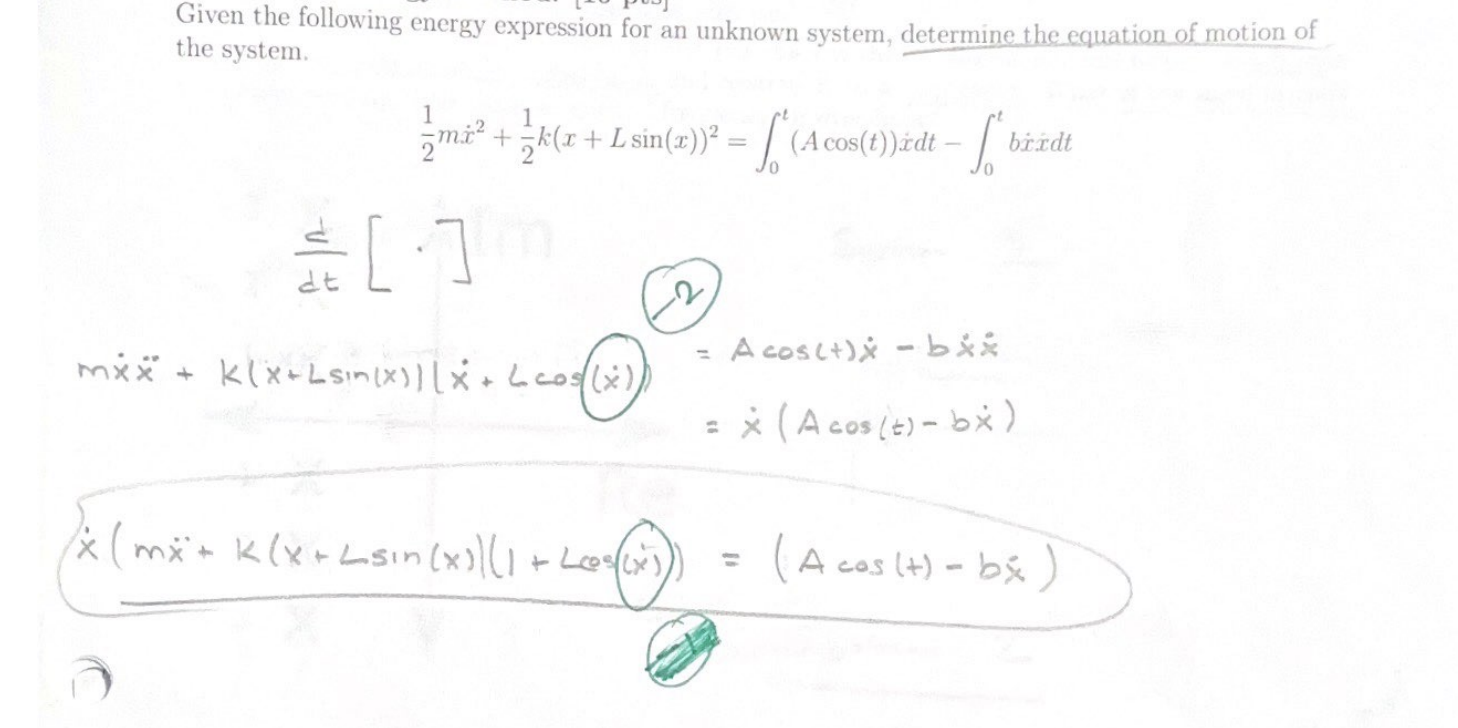 Given the following energy expression for an unknown system, determine the equation of motion of
the system.
½mẋ² + ½k(x + L sin(x))² = ∫₀ᵗ (A cos(t))ẋdt − ∫₀ᵗ bẋẋdt
d/dt [ · ]
-2
mẋẍ + k(x+Lsin(x))(ẋ + Lcos(ẋ)) = A cos(t)ẋ − bẋẋ
= ẋ (A cos(t) − bẋ)
ẋ(mẍ + k(x+Lsin(x))(1 + Lcos(ẋ)) = (A cos(t) − bẋ)